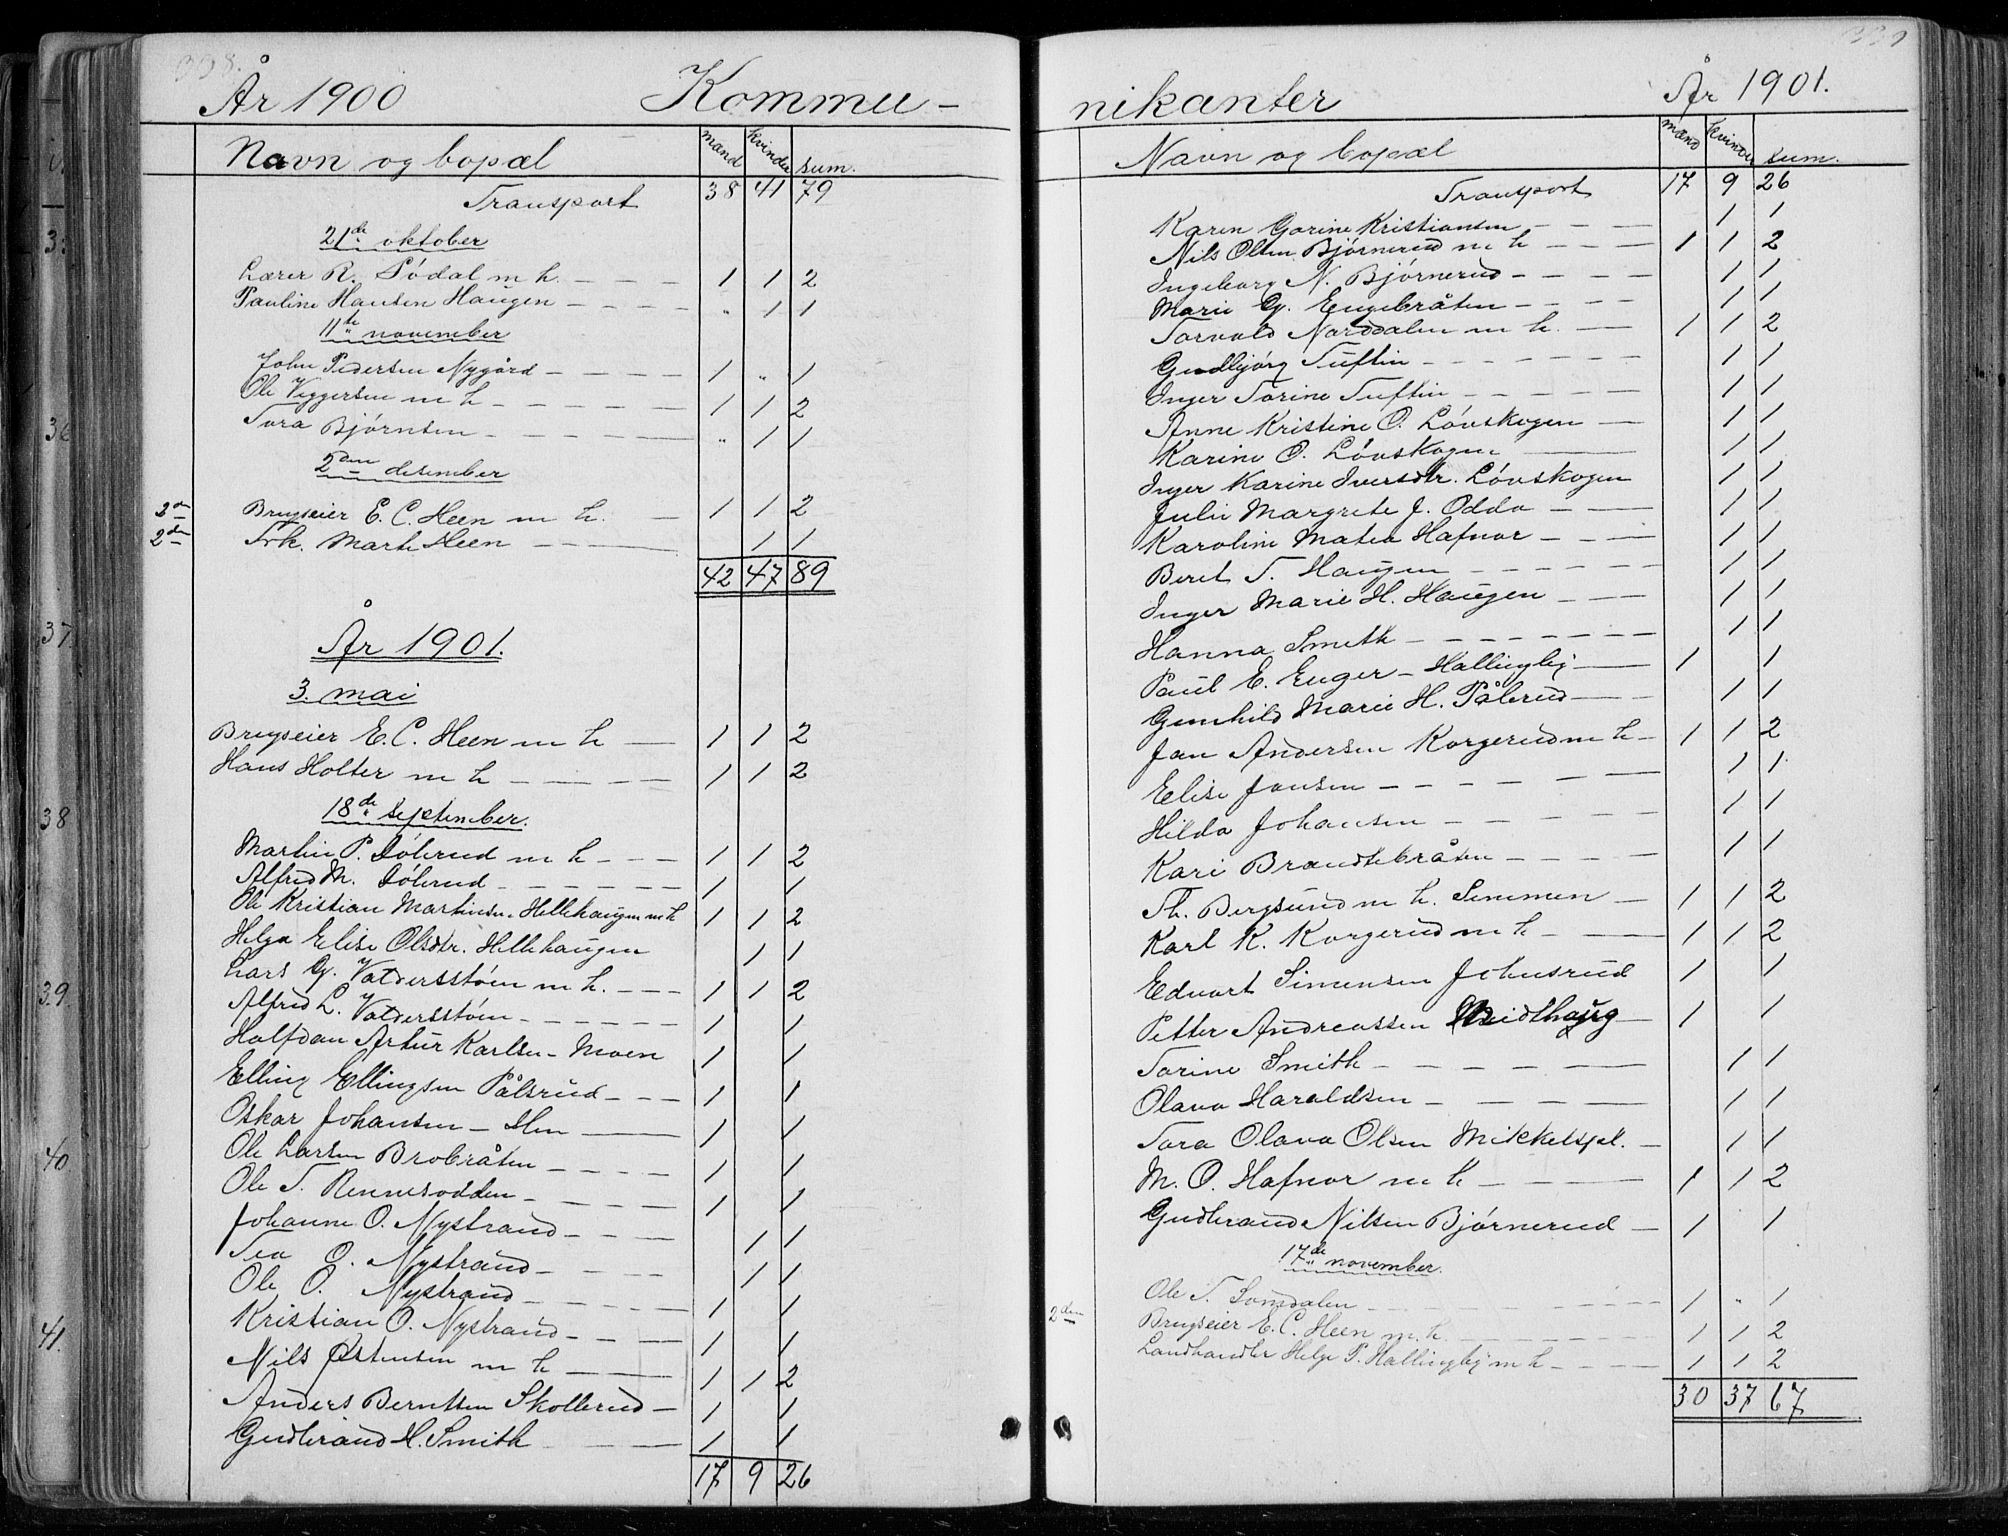 338.
År 1900 Kommu-
Navn og bopæl mænd kvinder sum.
Transport 38 41 79
21de oktober
Lærer R. Sódal m h. 1 1 2
Pauline Hansen Haugen " 1 1
11te november
John Pedersen Nygård 1 " 1
Ole Viggersen m h 1 1 2
Tora Bjørnsen " 1 1
2den desember
2den Brugseier E. C. Heen m h. 1 1 2
2den Frk. Marte Heen 1 1
42 47 89
År 1901.
3. mai
Brugseier E. C. Heen m h 1 1 2
Hans Holter m h 1 1 2
18de september.
Martin P. Dólerud m h 1 1 2
Alfred M. Dólerud 1 1
Ole Kristian Martinsen Hellehaugen m h 1 1 2
Helga Elise Olsdtr. Hellehaugen 1 1
Lars G. Valdersstóen m h. 1 1 2
Alfred L. Valdersstóen 1 1
Halfdan Artur Karlsen Moen 1 1
Elling Ellingsen Pålsrud 1 1
Oskar Johansen - Hen 1 1
Ole Larsen Brobråten 1 1
Ole T. Rennesodden 1 1
Johanne O. Nystrand 1 1
Tea O. Nystrand 1 1
Ole O. Nystrand 1 1
Kristian O. Nystrand 1 1
Nils Østensen m h 1 1 2
Anders Berntsen Skollerud 1 1
Gudbrand H. Smith 1 1
17 9 26
339
nikanter År 1901.
Navn og bopæl mænd kvinder sum.
Transport 17 9 26
Karen Gorine Kristiansen 1 1
Nils Olsen Bjørnerud m h 1 1 2
Ingeborg N. Bjørnerud 1 1
Marie G. Engebråten 1 1
Torvald Norddalen m h. 1 1 2
Gudbjørg Tuftin 1 1
Inger Torine Tuftin 1 1
Anne Kristine O. Lóvskogen 1 1
Karine O. Lóvskogen 1 1
Inger Karine Iversdtr. Lóvskogen 1 1
Julie Margrete J. Odda 1 1
Karoline Matea Hafnor 1 1
Beret T. Haugen 1 1
Inger Marie H. Haugen 1 1
Hanna Smith 1 1
Paul E. Enger - Hallingby 1 1
Gunhild Marie H. Pålerud 1 1
Jan Andersen Korgerud m h 1 1 2
Elise Jansen 1 1
Hilda Johansen 1 1
Kari Brandtebråten 1 1
Th. Bergsund m h. Semmen 1 1 2
Karl K. Korgerud m h 1 1 2
Edvart Simensen Johnsrud 1 1
Petter Andreassen 1 1
Torine Smith 1 1
Olava Haraldsen 1 1
Tora Olava Olsen Mikkelspl. 1 1
M. O. Hafnor m h 1 1 2
Gudbrand Nilsen Bjørnerud 1 1
17de november.
Ole T. Somdalen 1 " 1
2den Brugseier E. C. Heen m. h. 1 1 2
Landhandler Helge P. Hallingby m h 1 1 2
30 37 67